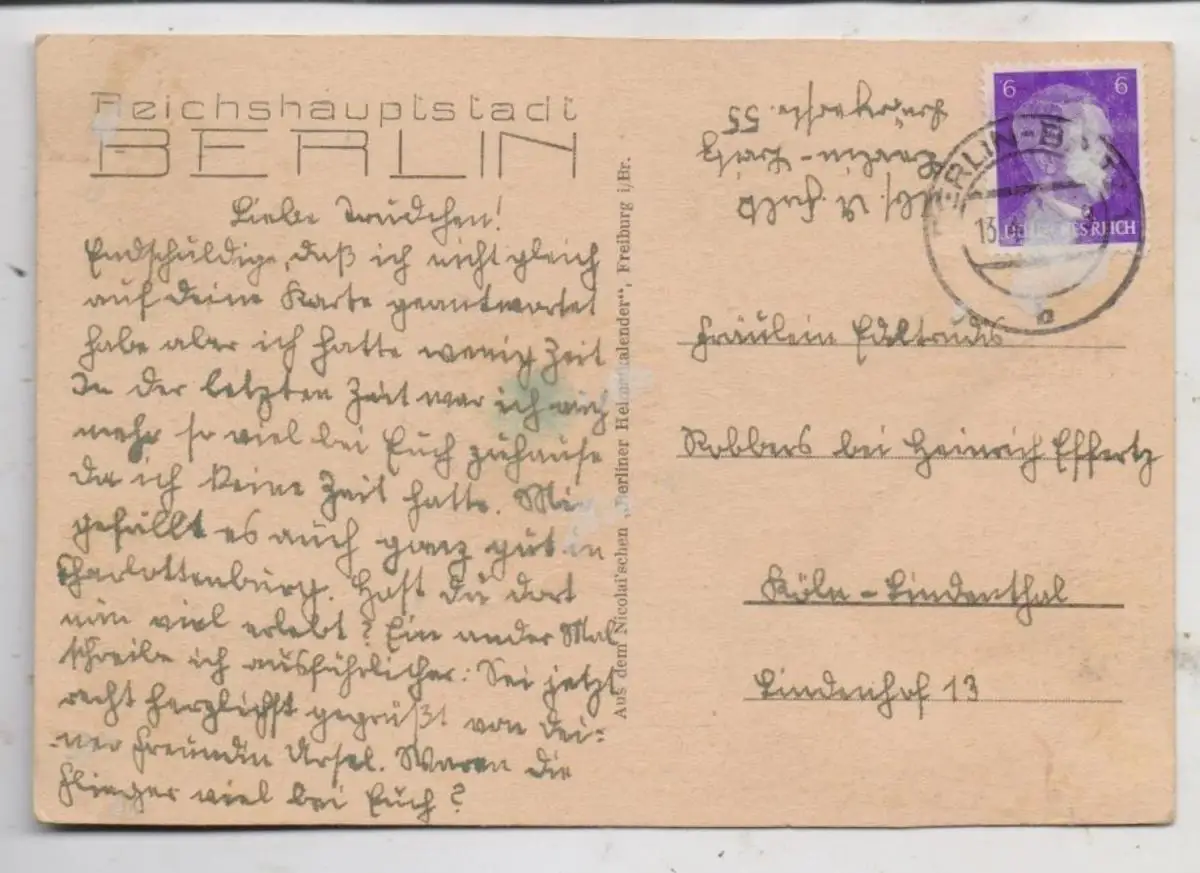 Reichshauptstadt
BERLIN
Liebe Trudchen!
Endschuldige, daß ich nicht gleich
auf deine Karte geantwortet
habe aber ich hatte wenig Zeit
In der letzten Zeit war ich nich
mehr so viel bei Euch zuhause
da ich keine Zeit hatte. Mir
gefällt es auch ganz gut in
Charlottenburg. Hast du dort
nun viel erlebt? Ein ander Mal
schreibe ich ausführlicher. Sei jetzt
recht herzlichst gegrüßt von dei-
ner Freundin Ursel. Waren die
Flieger viel bei Euch?
Aus dem Nicolai'schen „Berliner Heimatkalender“, Freiburg i/Br.
Abs. U.
Berlin-
55
6 6
DEUTSCHES REICH
BERLIN-
13.4
a
Fräulein Edeltrudis
Robbers bei Heinrich Effertz
Köln-Lindenthal
Lindenhof 13